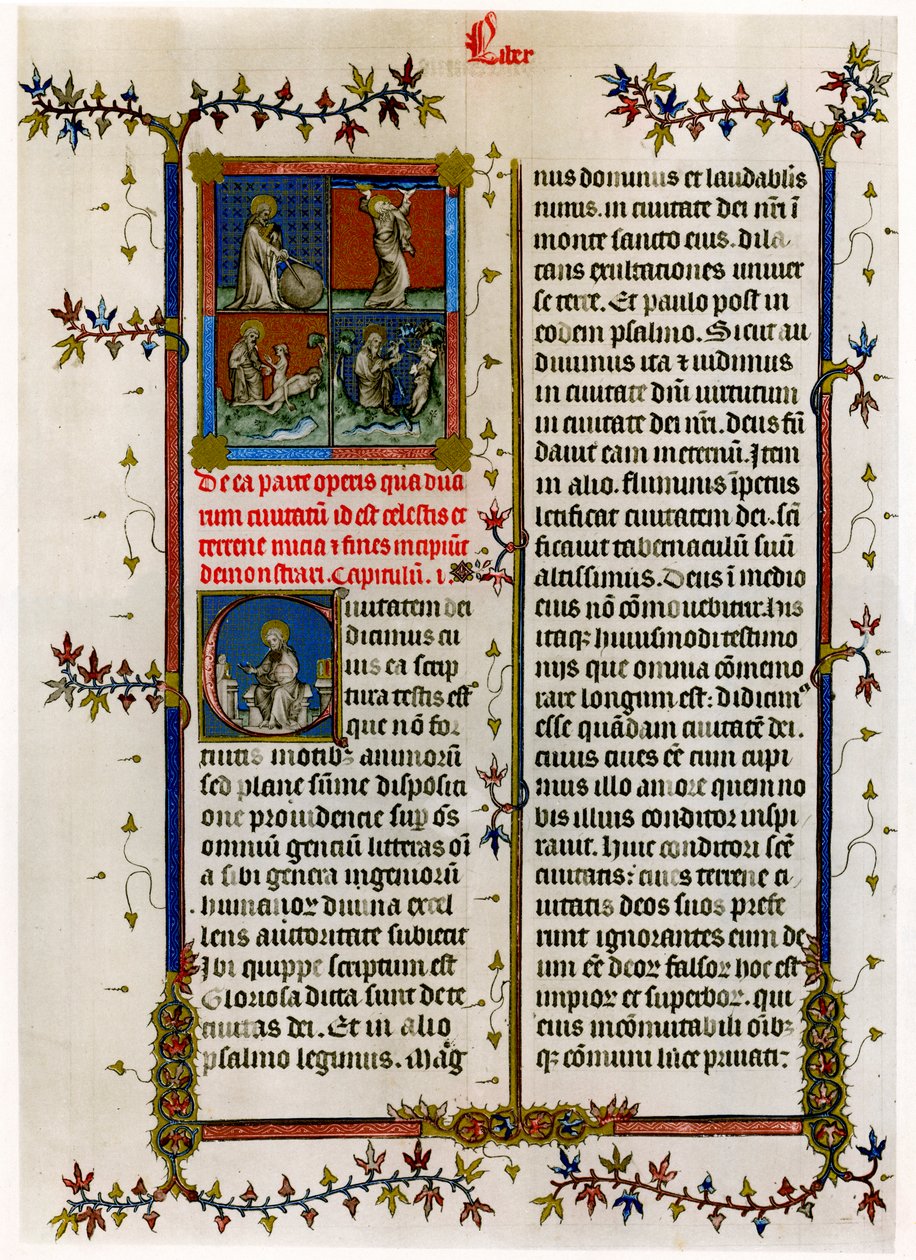 Liber
De ea parte operis qua dua
rum ciuitatū id est celestis et
terrene inicia ⁊ fines incipiūt
demonstrari. Capitulū. i.
Ciuitatem dei
dicimus cu
ius ea scrip
tura testis est
que nō for
tuitis motibꝫ animorū
sed plane sūme dispositi
one prouidencie sup ōs
omniū genciū litteras oī
a sibi genera ingeniorū
humanoꝝ diuina excel
lens auctoritate subiecit
Ibi quippe scriptum est
Gloriosa dicta sunt de te
ciuitas dei. Et in alio
psalmo legimus. Mag
nus dominus et laudabilis
nimis. in ciuitate dei nr̄i ī
monte sancto eius. dila
tans exultationes uniuer
se terre. Et paulo post in
eodem psalmo. Sicut au
diuimus ita ⁊ uidimus
in ciuitate dn̄i uirtutum
in ciuitate dei nr̄i. deus fū
dauit eam in eternū. Item
in alio. fluminis īpetus
letificat ciuitatem dei. scī
ficauit tabernaculū suū
altissimus. Deus ī medio
eius nō cōmouebitur. his
itaqꝫ huiusmodi testimo
nijs que omnia cōmemo
rare longum est: didicimꝰ
esse quādam ciuitatē dei.
cuius ciues eē cum cupi
mus illo amore quem no
bis illius conditor inspi
rauit. Huic conditori scē
ciuitatis: ciues terrene ci
uitatis deos suos prefe
runt ignorantes eum de
um eē deoꝝ falsoꝝ hoc est
impioꝝ et superboꝝ. qui
eius incōmutabili oībꝫ
qꝫ cōmuni luce priuati: